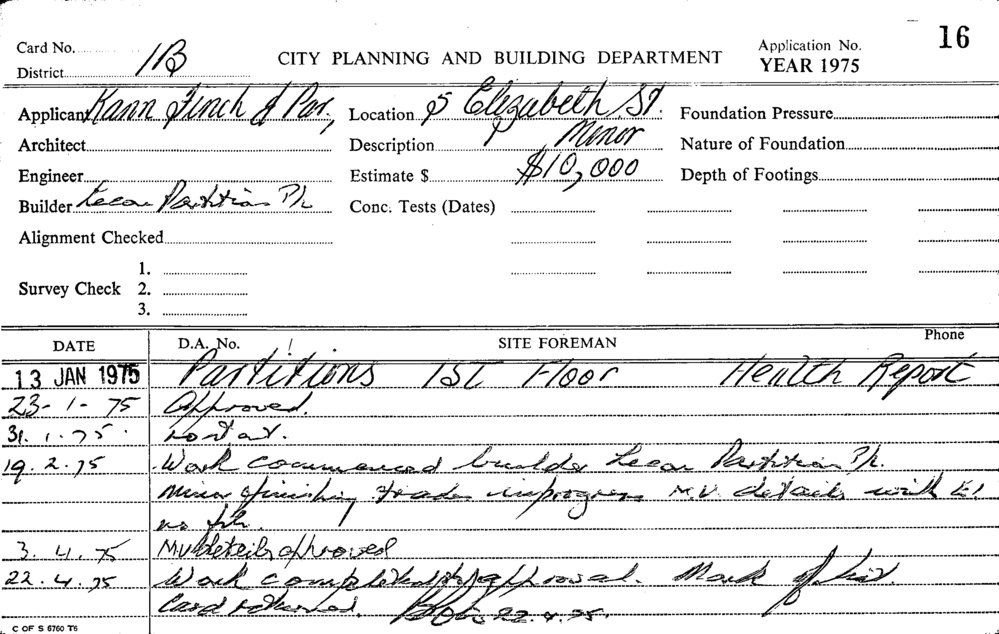 Card No. 1B
District
CITY PLANNING AND BUILDING DEPARTMENT
Application No. 16
YEAR 1975
Applicant Kann Finch & Par,
Location 5 Elizabeth St.
Foundation Pressure
Architect
Description Minor
Nature of Foundation
Engineer
Estimate $ $10,000
Depth of Footings
Builder Lecor Partition P/L
Conc. Tests (Dates)
Alignment Checked
1.
Survey Check 2.
3.
DATE D.A. No. SITE FOREMAN Phone
13 JAN 1975 Partitions 1ST Floor Health Report
23-1-75 Approved.
31.1.75.
19.2.75 Work commenced builder Lecor Partition P/L.
Minor finishing trades in progress M.V. details with
no
3.4.75 M.V details approved
22.4.75 Work completed approval. Mark off
Card returned. 22.4.75.
C OF S 6760 T6